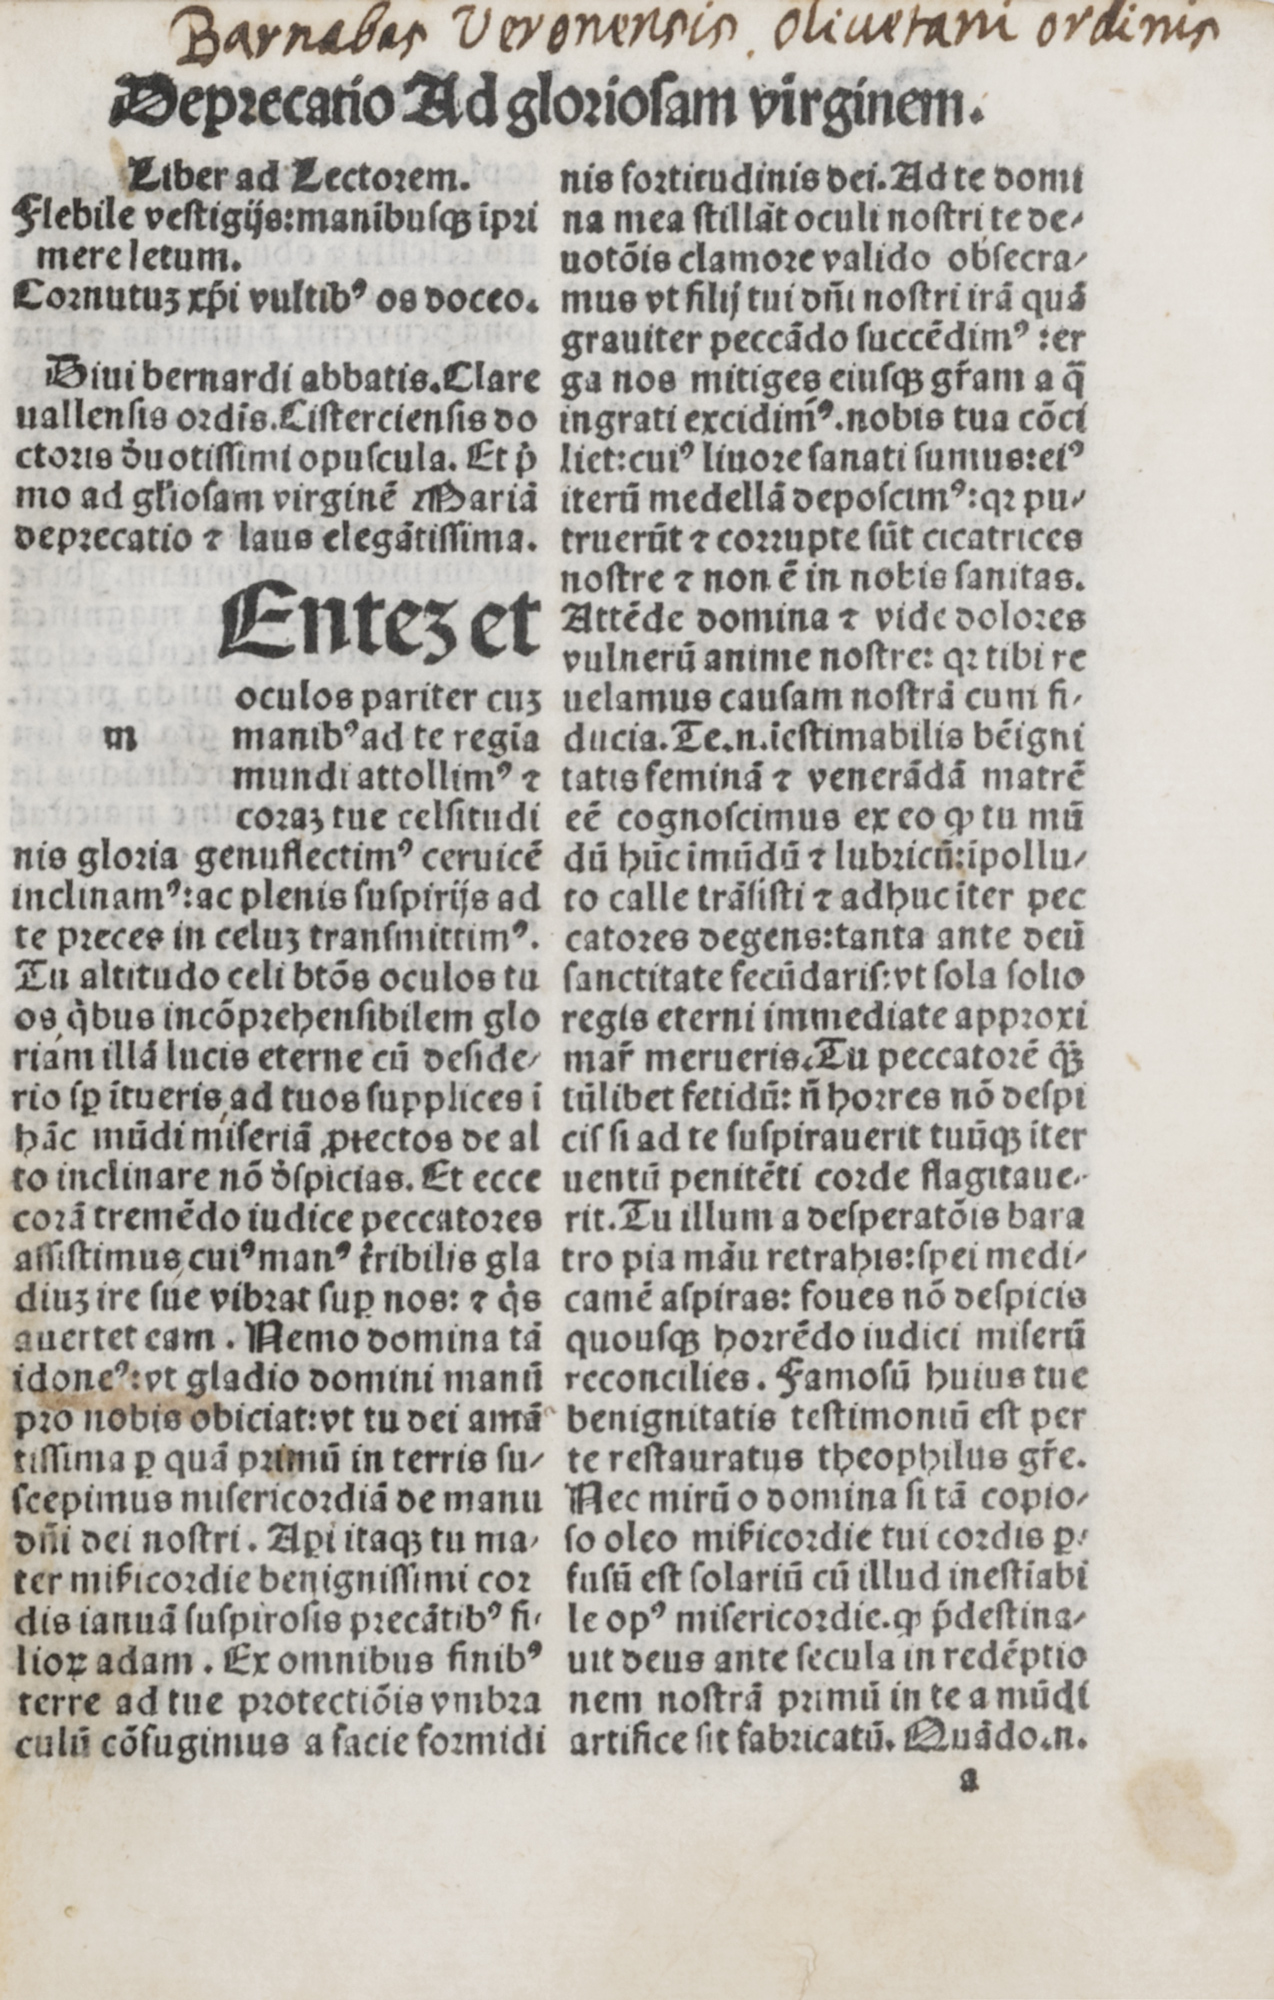 Barnabas Veronensis. oliuetani ordinis
Deprecatio Ad gloriosam virginem.
Liber ad Lectorem.
Flebile vestigijs:manibusqꝫ īpri
mere letum.
Cornutuꝫ xp̄i vultibꝰ os doceo.
Diui bernardi abbatis.Clare
uallensis ordīs.Cisterciensis do
ctoris d̓uotissimi opuscula. Et p̓
mo ad gl̓iosam virginē Mariā
deprecatio ⁊ laus elegātissima.
Enteꝫ et
oculos pariter cuꝫ
m manibꝰ ad te regīa
mundi attollimꝰ ⁊
coraꝫ tue celsitudi
nis gloria genuflectimꝰ ceruicē
inclinamꝰ:ac plenis suspirijs ad
te preces in celuꝫ transmittimꝰ.
Tu altitudo celi btōs oculos tu
os q̓bus incōprehensibilem glo
riam illā lucis eterne cū deside⸗
rio sꝑ ītueris ad tuos supplices ī
hāc mūdi miseriā ꝓiectos de al
to inclinare nō d̓spicias. Et ecce
corā tremēdo iudice peccatores
assistimus cuiꝰ manꝰ t̓ribilis gla
diuꝫ ire sue vibrat suꝑ nos: ⁊ q̓s
auertet eam . Nemo domina tā
idoneꝰ:vt gladio domini manū
pro nobis obiciat:vt tu dei amā
tissima ꝑ quā primū in terris su⸗
scepimus misericordiā de manu
dn̄i dei nostri . Aꝑi itaqꝫ tu ma⸗
ter mis̓icordie benignissimi cor
dis ianuā suspirosis precātibꝰ fi⸗
lioꝝ adam . Ex omnibus finibꝰ
terre ad tue protectiōis vmbra
culū cōfugimus a facie formidi
nis fortitudinis dei.Ad te domi
na mea stillāt oculi nostri te de⸗
uotōis clamore valido obsecra⸗
mus vt filij tui dn̄i nostri irā quā
grauiter peccādo succēdimꝰ :er
ga nos mitiges eiusqꝫ gr̄am a q̄
ingrati excidimꝰ.nobis tua cōci
liet:cuiꝰ liuore sanati sumus:eiꝰ
iterū medellā deposcimꝰ:qꝛ pu⸗
truerūt ⁊ corrupte sūt cicatrices
nostre ⁊ non ē in nobis sanitas.
Attēde domina ⁊ vide dolores
vulnerū anime nostre: qꝛ tibi re
uelamus causam nostrā cum fi⸗
ducia.Te.n.īestimabilis bēigni
tatis feminā ⁊ venerādā matrē
eē cognoscimus ex eo ꝙ tu mū
dū hūc imūdū ⁊ lubricū:īpollu⸗
to calle trāsisti ⁊ adhuc iter pec
catores degens:tanta ante deū
sanctitate fecūdaris:vt sola solio
regis eterni immediate approxi
mar̄ merueris.Tu peccatorē q̄ꝫ
tūlibet fetidū: n̄ horres nō despi
cis si ad te suspirauerit tuūqꝫ iter
uentū penitēti corde flagitaue⸗
rit.Tu illum a desperatōis bara
tro pia māu retrahis:spei medi⸗
camē aspiras: foues nō despicis
quousqꝫ horrēdo iudici miserū
reconcilies . Famosū huius tue
benignitatis testimoniū est per
te restauratus theophilus gr̄e.
Nec mirū o domina si tā copio⸗
so oleo mis̓icordie tui cordis ꝑ⸗
fusū est solariū cū illud inestīabi
le opꝰ misericordie.ꝙ p̄destina⸗
uit deus ante secula in redēptio
nem nostrā primū in te a mūdi
artifice sit fabricatū. Quādo.n.
a